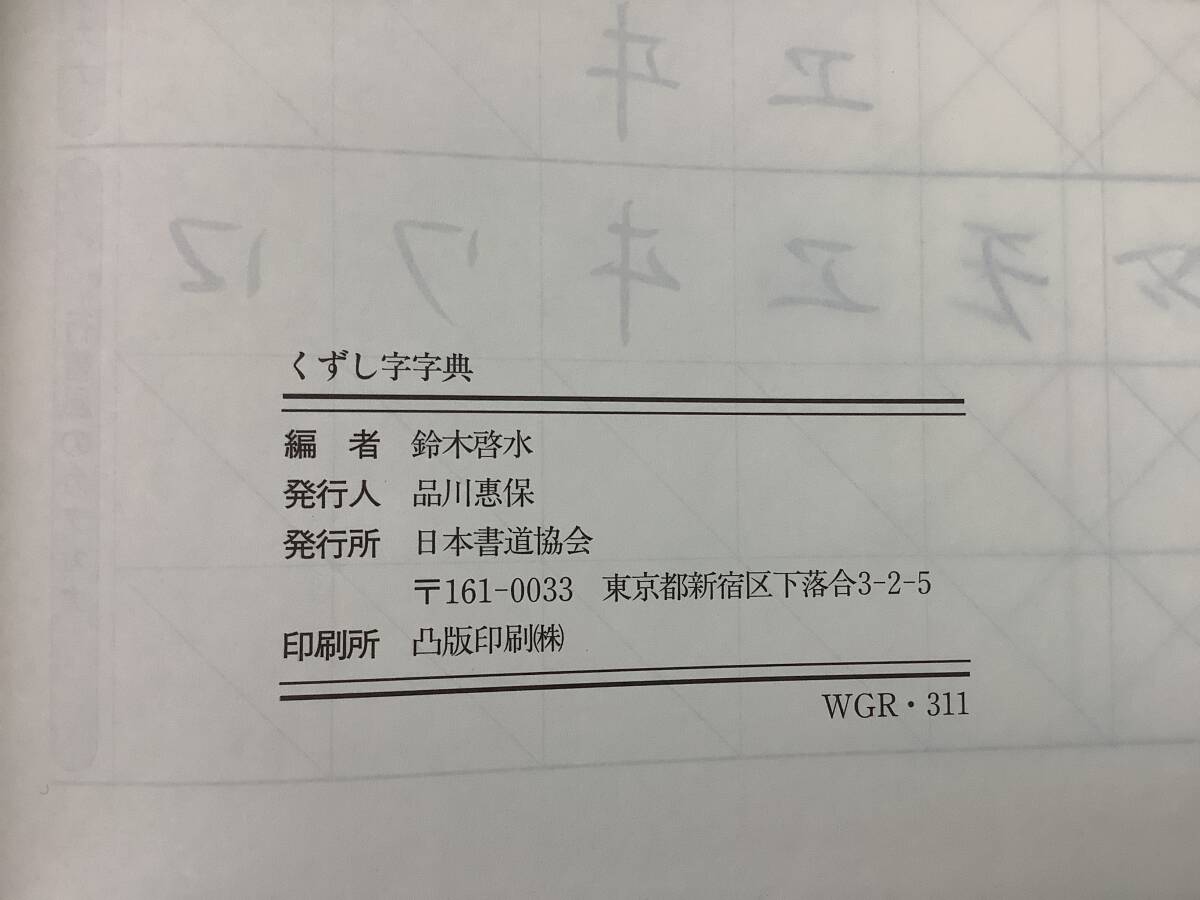 くずし字字典
編　者　鈴木啓水
発行人　品川惠保
発行所　日本書道協会
〒161-0033　東京都新宿区下落合3-2-5
印刷所　凸版印刷㈱
WGR・311